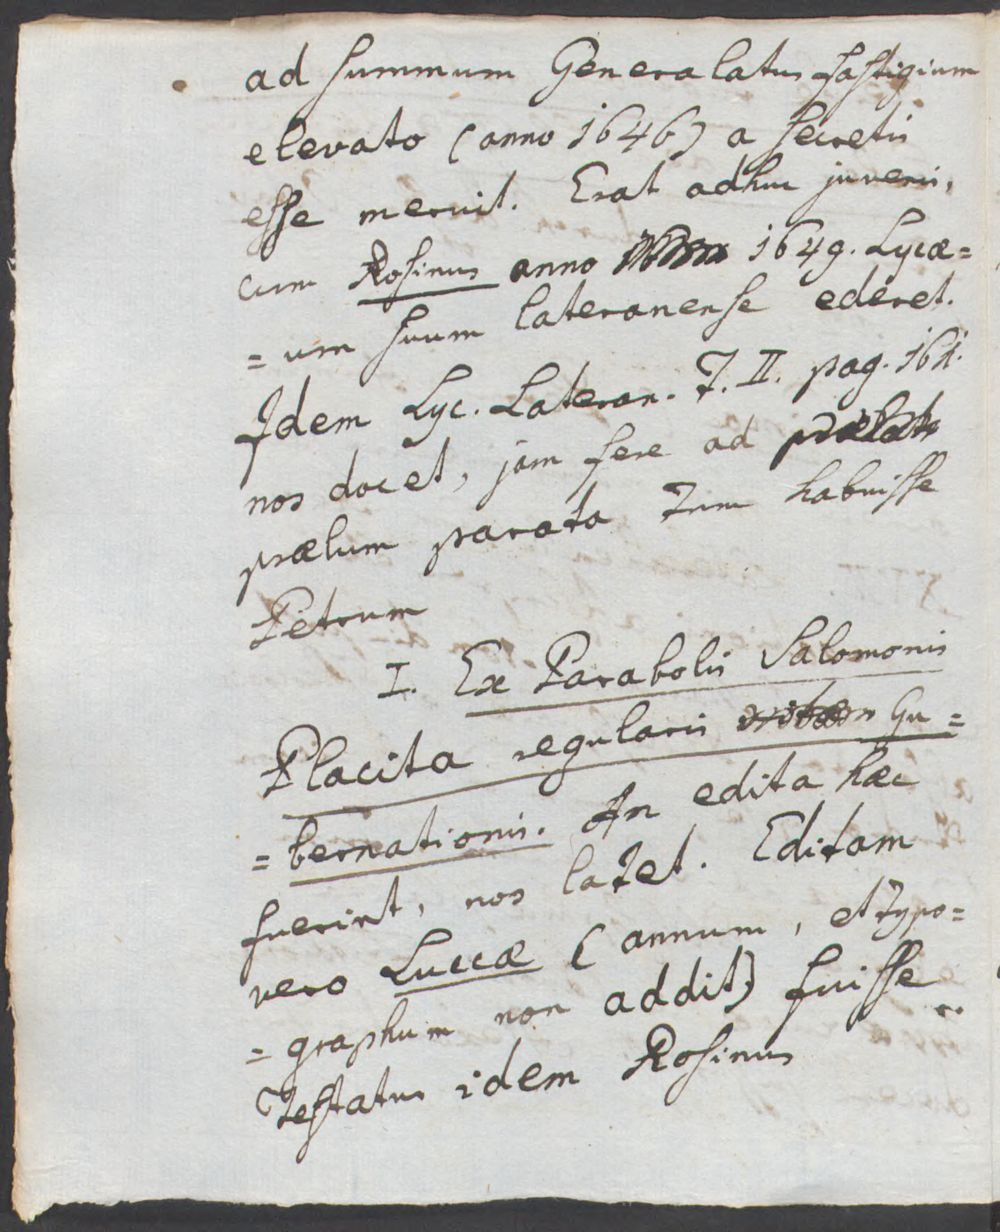 ad summum Generalatus fastigium
elevato (anno 1646) a secretis
esse meruit. Erat adhuc juvenis,
cum Rosinus anno 1649. Lycæ=
=um suum lateranense ederet.
Idem Lyc. Lateran. T. II. pag. 161.
nos docet, jam fere ad
prælum parata tum habuisse
Petrum
I. Ex Parabolis Salomonis
Placita regularis Gu=
=bernationis. An edita hæc
fuerint, nos latet. Editam
vero Luccæ (annum, et typo=
=graphum non addit) fuisse
testatus idem Rosinus